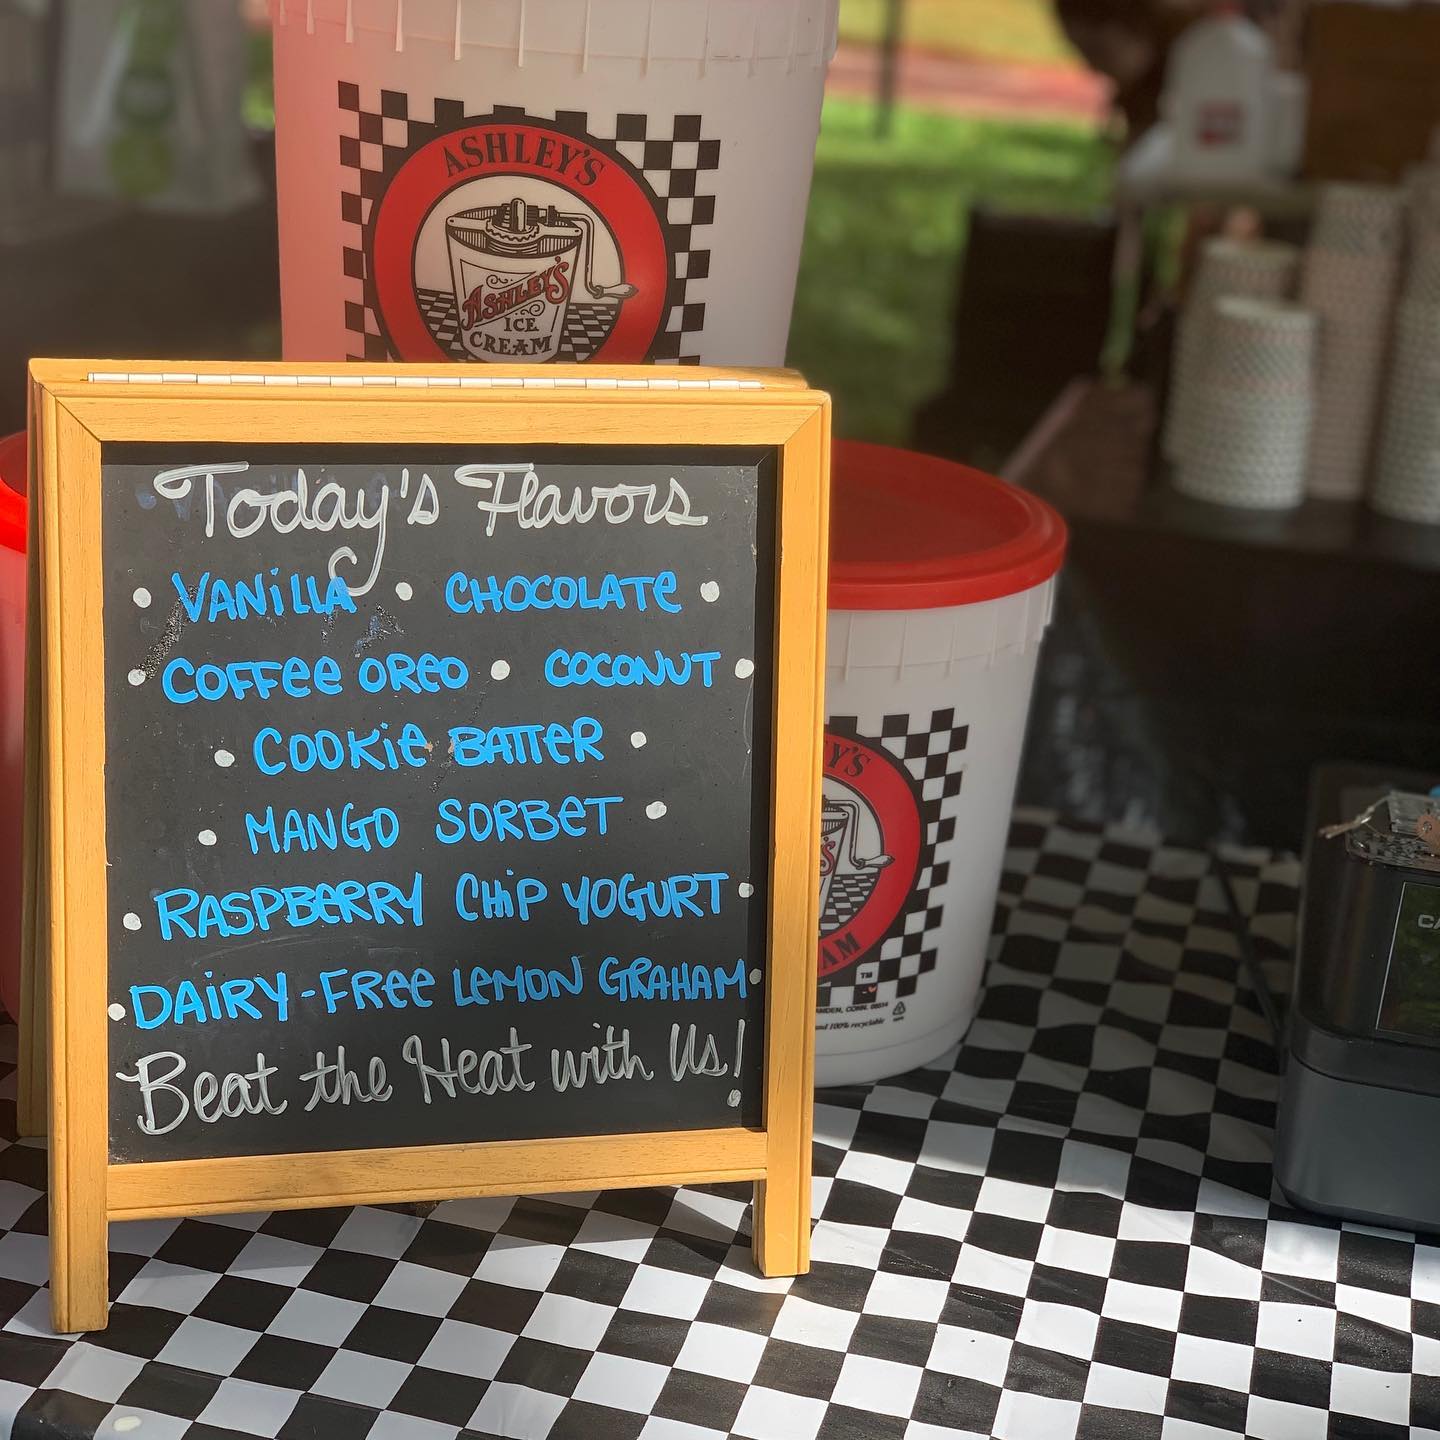 ASHLEY'S
ASHLEY'S
ICE
CREAM
Today's Flavors
• VANiLLA • CHOCOLATe •
• COFFee OReO • COCONUT •
• COOKie BATTeR •
• MANGO SORBeT •
• RASPBeRRY CHiP YOGURT •
• DAiRY-FRee LeMON GRAHAM •
Beat the Heat with Us!
Y'S
AM
TM
CONN. 06514
and 100% recyclable
CA